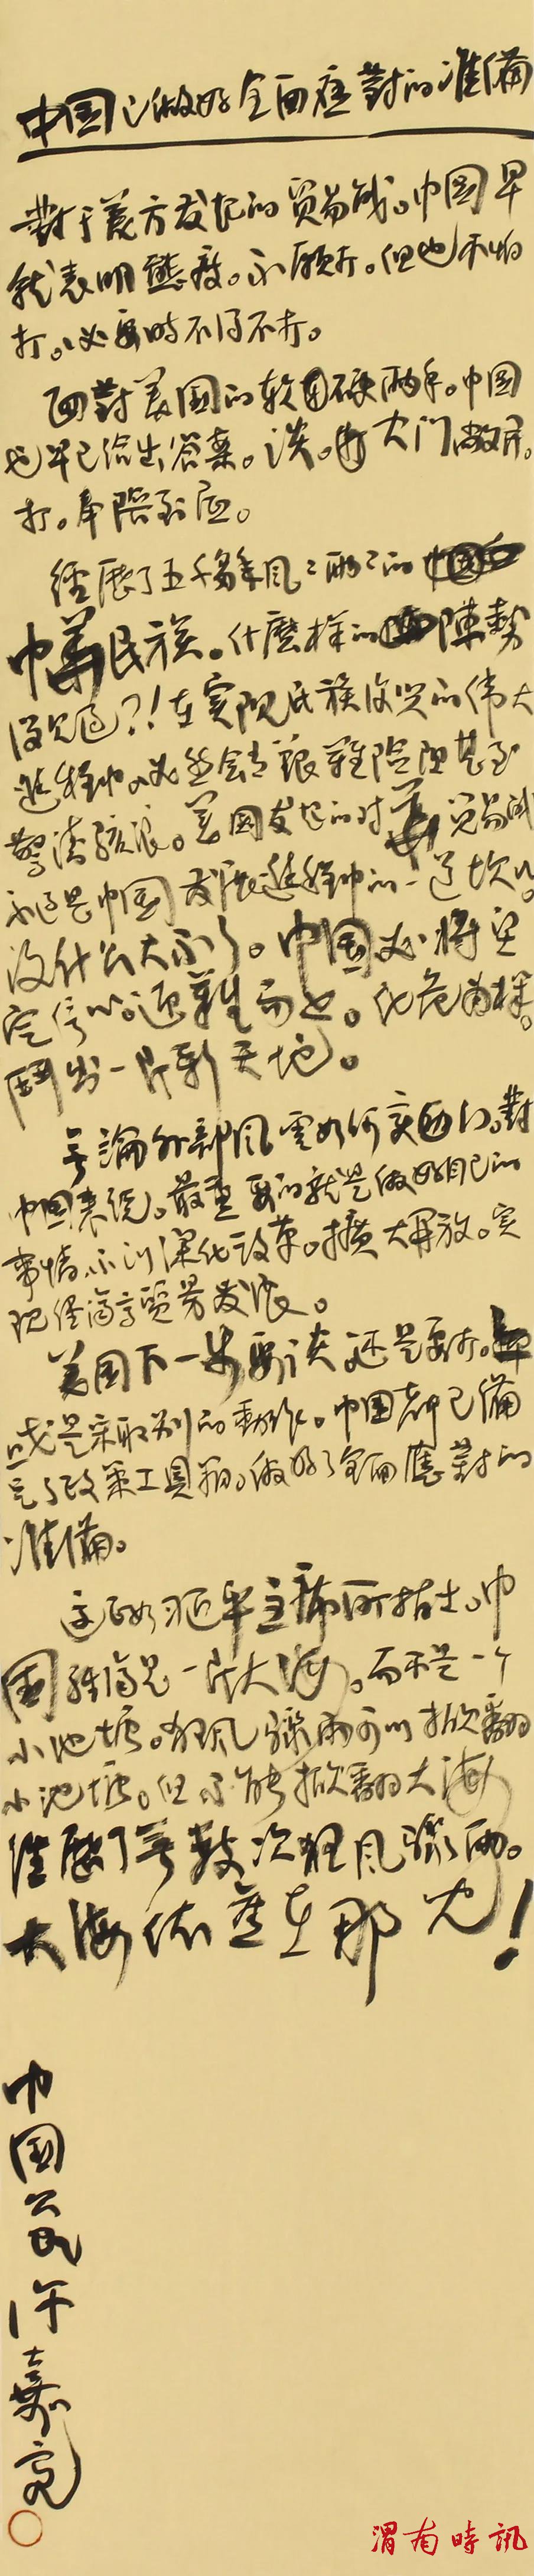 中国已做好全面应對的准備
對于美方发起的贸易战。中国早
就表明態度。不愿打。但也不怕
打。必要時不得不打。
面對美国的软硬两手。中国
也早已给出答案。谈。大门敞开。
打。奉陪到底。
经历了五千多年风风雨雨的
中華民族。什麽樣的陣勢
没见过?!在实现民族復兴的伟大
進程中。必然会有艰難险阻甚至
驚涛骇浪。美国发起的对華贸易战
不过是中国发展進程中的一道坎儿。
没什么大不了。中国必将坚
定信心。迎難而上。化危為機。
鬥出一片新天地。
無論外部风雲如何变幻。對
中国来说。最重要的就是做好自己的
事情。不断深化改革。擴大開放。实
现经济高质量发展。
美国下一步要谈还是要打。
或是采取别的動作。中国都已備
足了政策工具箱。做好了全面應對的
准備。
这正如习近平主席所指出。中
国经济是一片大海。而不是一个
小池塘。狂风骤雨可以掀翻
小池塘。但不能掀翻大海
经历了無数次狂风骤雨。
大海依舊在那儿!
中国公民许嘉亮
渭南時訊